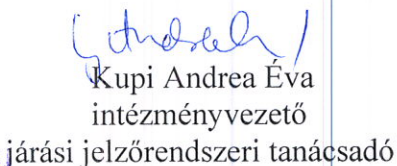 Kupi Andrea Éva
intézményvezető
járási jelzőrendszeri tanácsadó